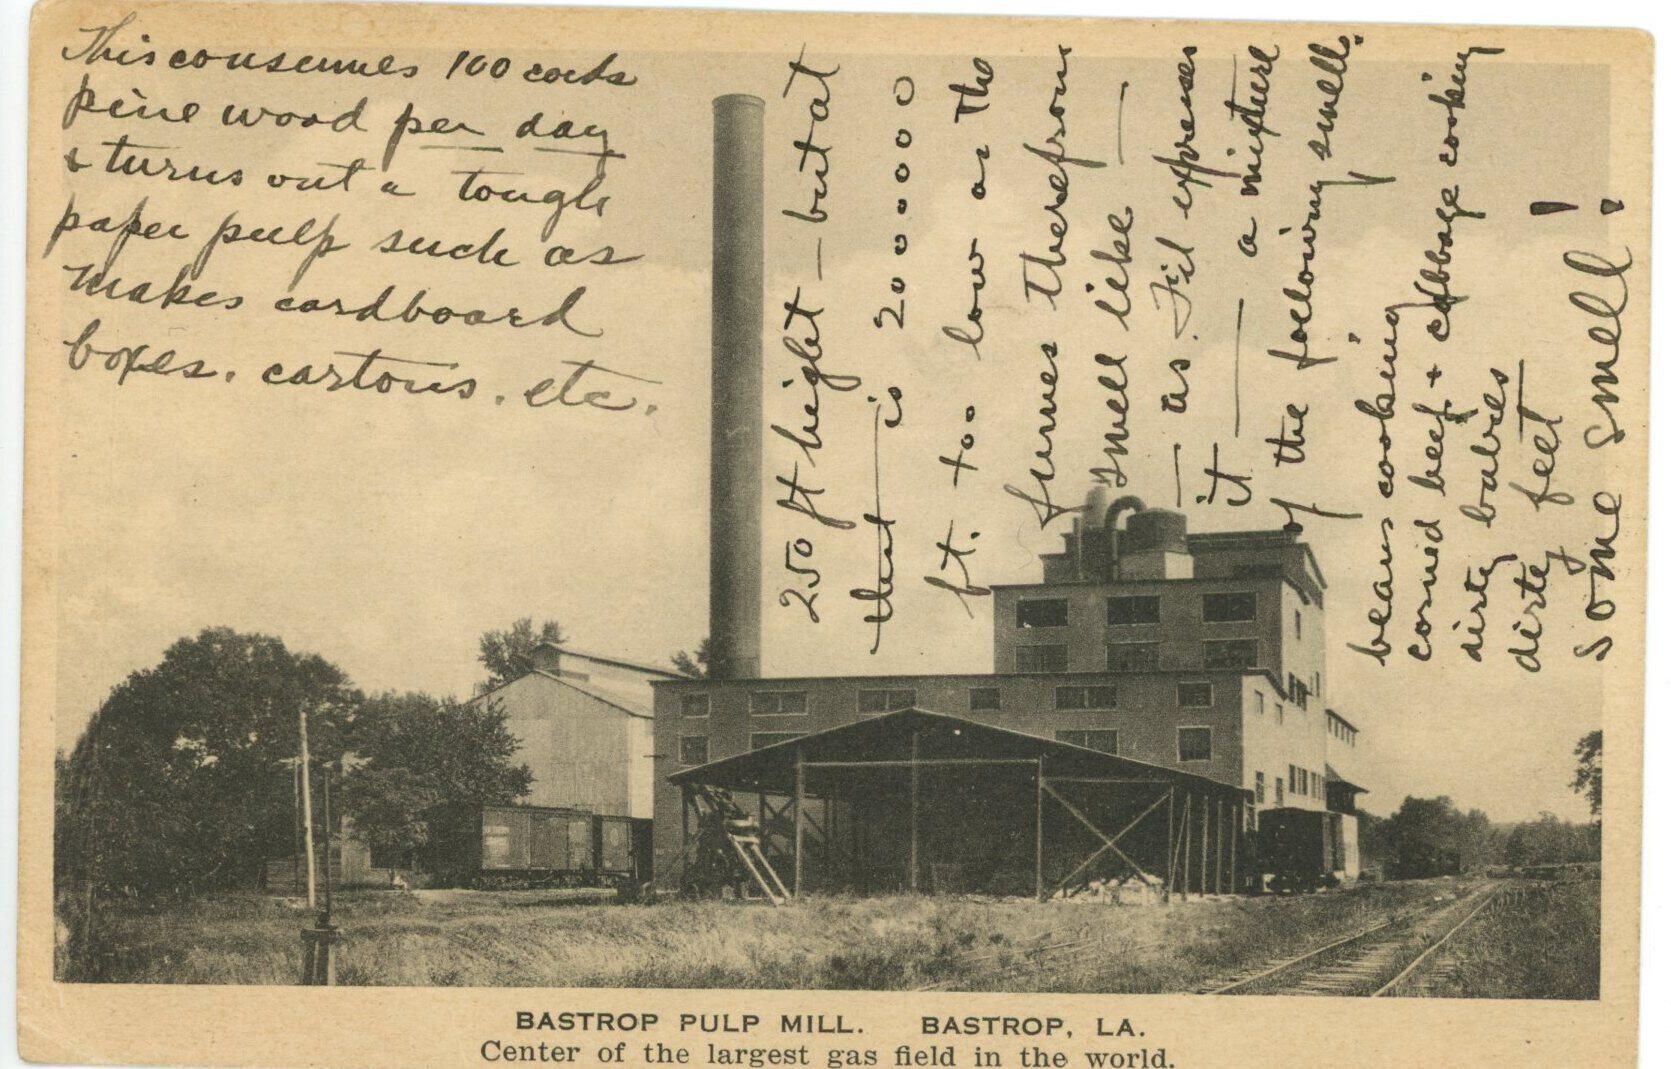 This consumes 100 cords
pine wood per day
& turns out a tough
paper pulp such as
makes cardboard
boxes. cartons. etc.
250 ft hight — but at
that is 20000000
ft. too low as the
fumes therefrom
smell like —
— as Fid expresses
it — a mixture
of the following smells:
beans cooking
corned beef & cabbage cooking
dirty babies
dirty feet
some smell!!
BASTROP PULP MILL. BASTROP, LA.
Center of the largest gas field in the world.